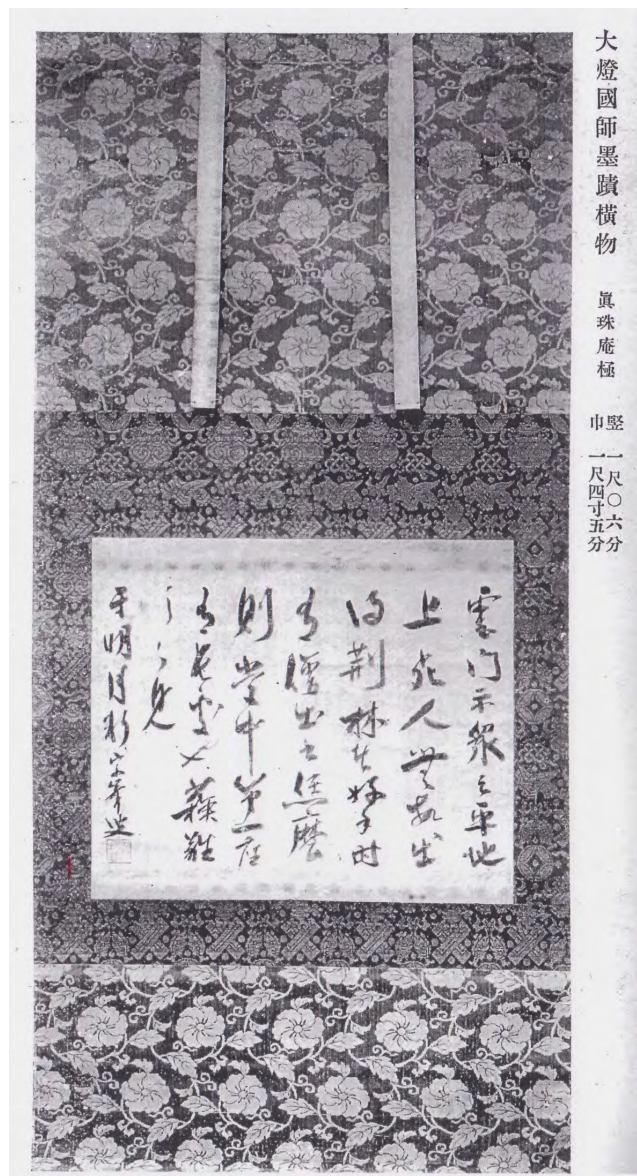 大燈國師墨蹟橫物 眞珠庵極
竪 一尺〇六分
巾 一尺四寸五分
雲門示衆云平地
上死人無數出
得荆林者好手時
有僧出云恁麼
則堂中第一座
有長處也蘇
見
明月